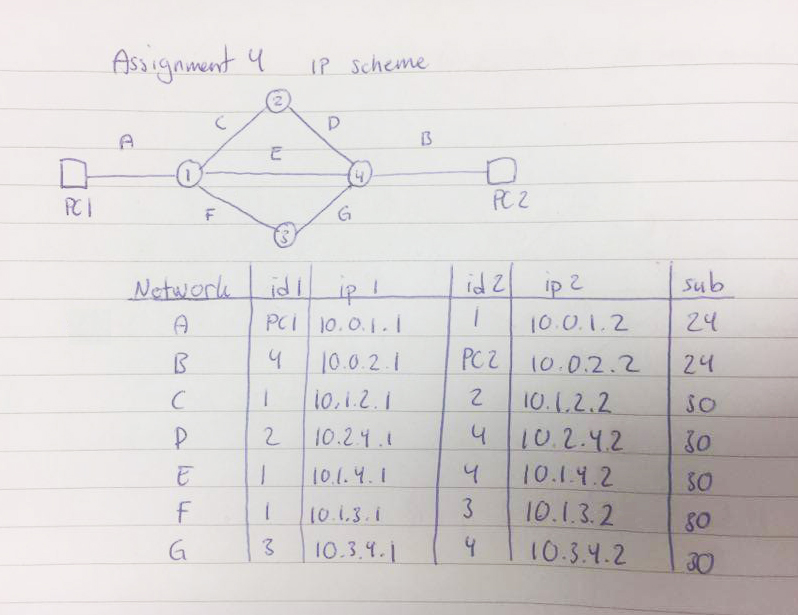 Assignment 4 IP scheme
2
C D
A E B
1 4
PC1 F G PC2
3
Network id1 ip 1 id2 ip2 sub
A PC1 10.0.1.1 1 10.0.1.2 24
B 4 10.0.2.1 PC2 10.0.2.2 24
C 1 10.1.2.1 2 10.1.2.2 30
D 2 10.2.4.1 4 10.2.4.2 30
E 1 10.1.4.1 4 10.1.4.2 30
F 1 10.1.3.1 3 10.1.3.2 30
G 3 10.3.4.1 4 10.3.4.2 30